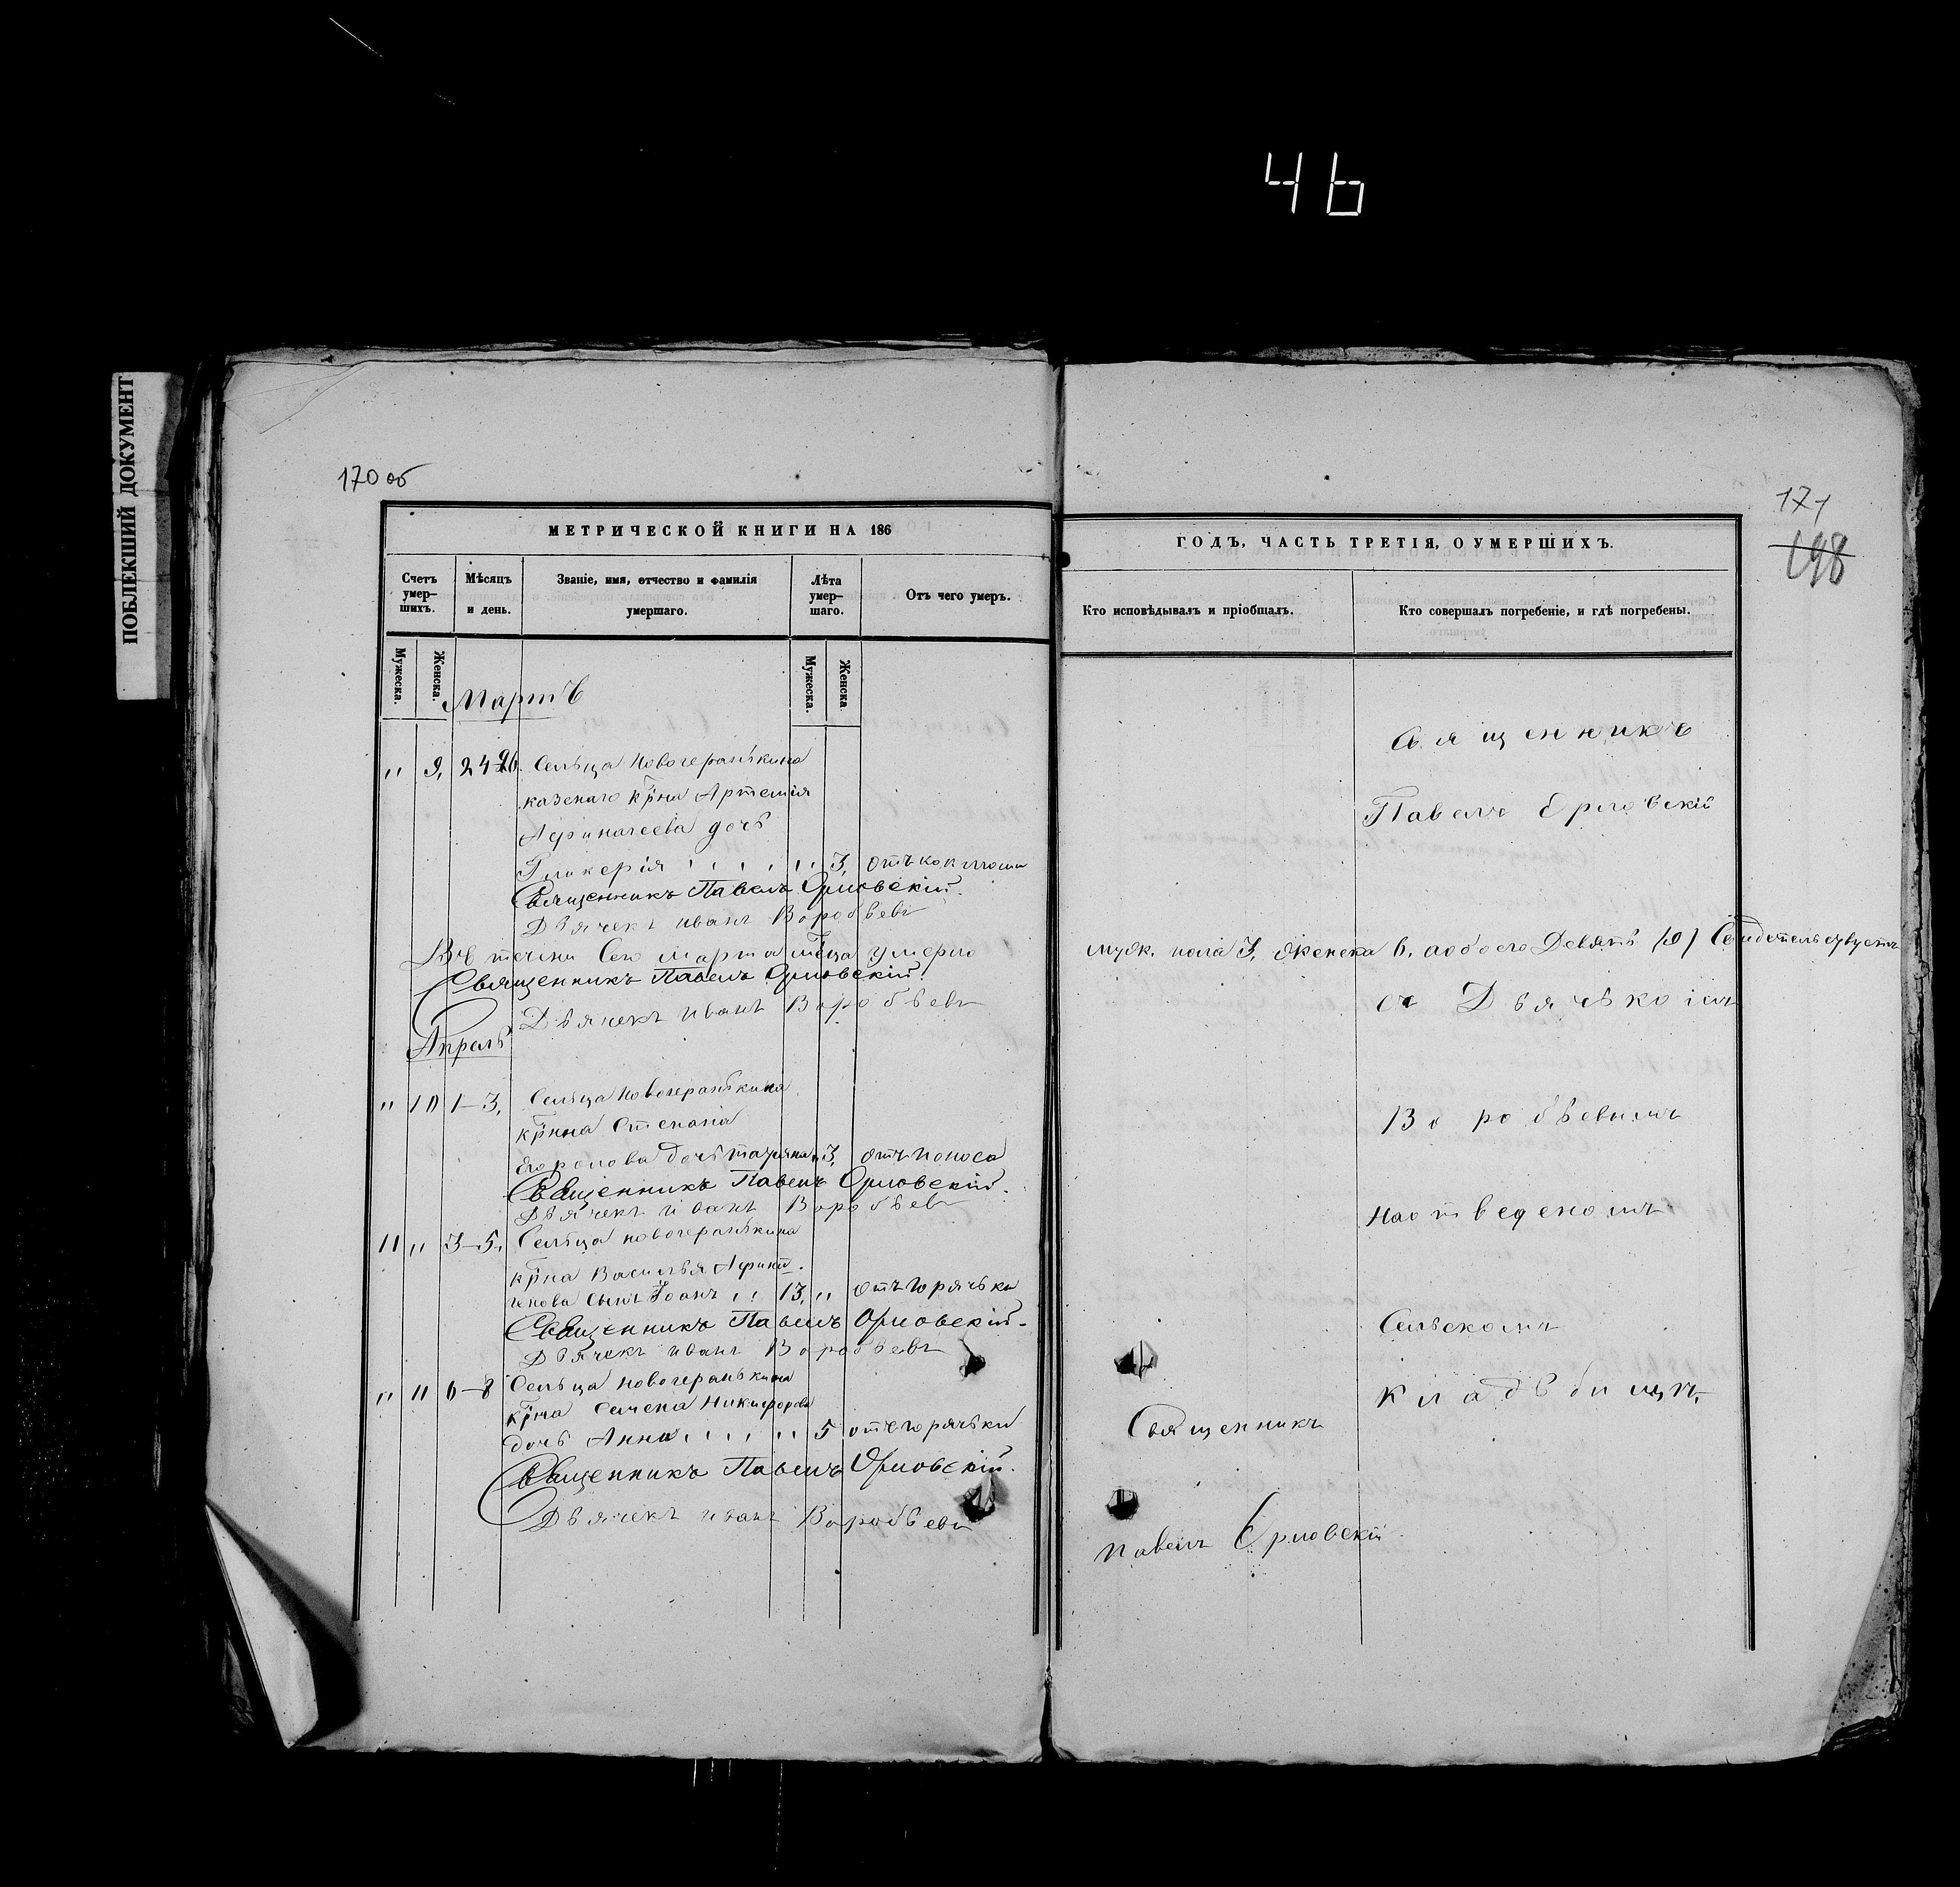 46
ПОБЛЕКШИЙ ДОКУМЕНТ
170 об
МЕТРИЧЕСКОЙ КНИГИ НА 186
Счетъ умер-шихъ.
Мѣсяцъ и день.
Званіе, имя, отчество и фамилія умершаго.
Лѣта умер-шаго.
Отъ чего умеръ.
Мужеска.
Женска.
Мужеска.
Женска.
Мартъ
" 9, 24-26. Сельца Новогеранькина
казенаго кр҃на Артемія
дочь
Гликерія " 3, отъ коклюша
Священникъ Павелъ Орловскій.
Дьячекъ Иванъ Воробьевъ
Въ течени сего марта м҃сца умерло
Священникъ Павелъ Орловскій.
Дьячекъ Иванъ Воробьевъ
Апрель
" 10 1-3, Сельца Новогеранькина
кр҃нна Степана
дочь " 3, отъ поноса
Священникъ Павелъ Орловскій.
Дьячекъ Иванъ Воробьевъ
11 " 3-5, Сельца новогеранькина
кр҃на Василья
сынъ Іоанъ " 13, " отъ горячьки
Священникъ Павелъ Орловскій.
Дьячекъ иванъ Воробьевъ
" 11 6-8 Сельца новогеранькина
кр҃на Семена Никифорова
дочь Анна " 5 отъ горячьки
Священникъ Павелъ Орловскій.
Дьячекъ иванъ Воробьевъ
171
198
ГОДЪ, ЧАСТЬ ТРЕТІЯ, О УМЕРШИХЪ.
Кто исповѣдывалъ и пріобщалъ.
Кто совершалъ погребеніе, и гдѣ погребены.
Священникъ
Павелъ Орловскій
муж. пола 3, женска 6, аобоего Девять (9) Свидетельствуетъ
съ Дьячькомъ
Воробьевымъ
Наотведеномъ
Сельскомъ
кладьбищъ,
Священникъ
Павелъ Орловскій